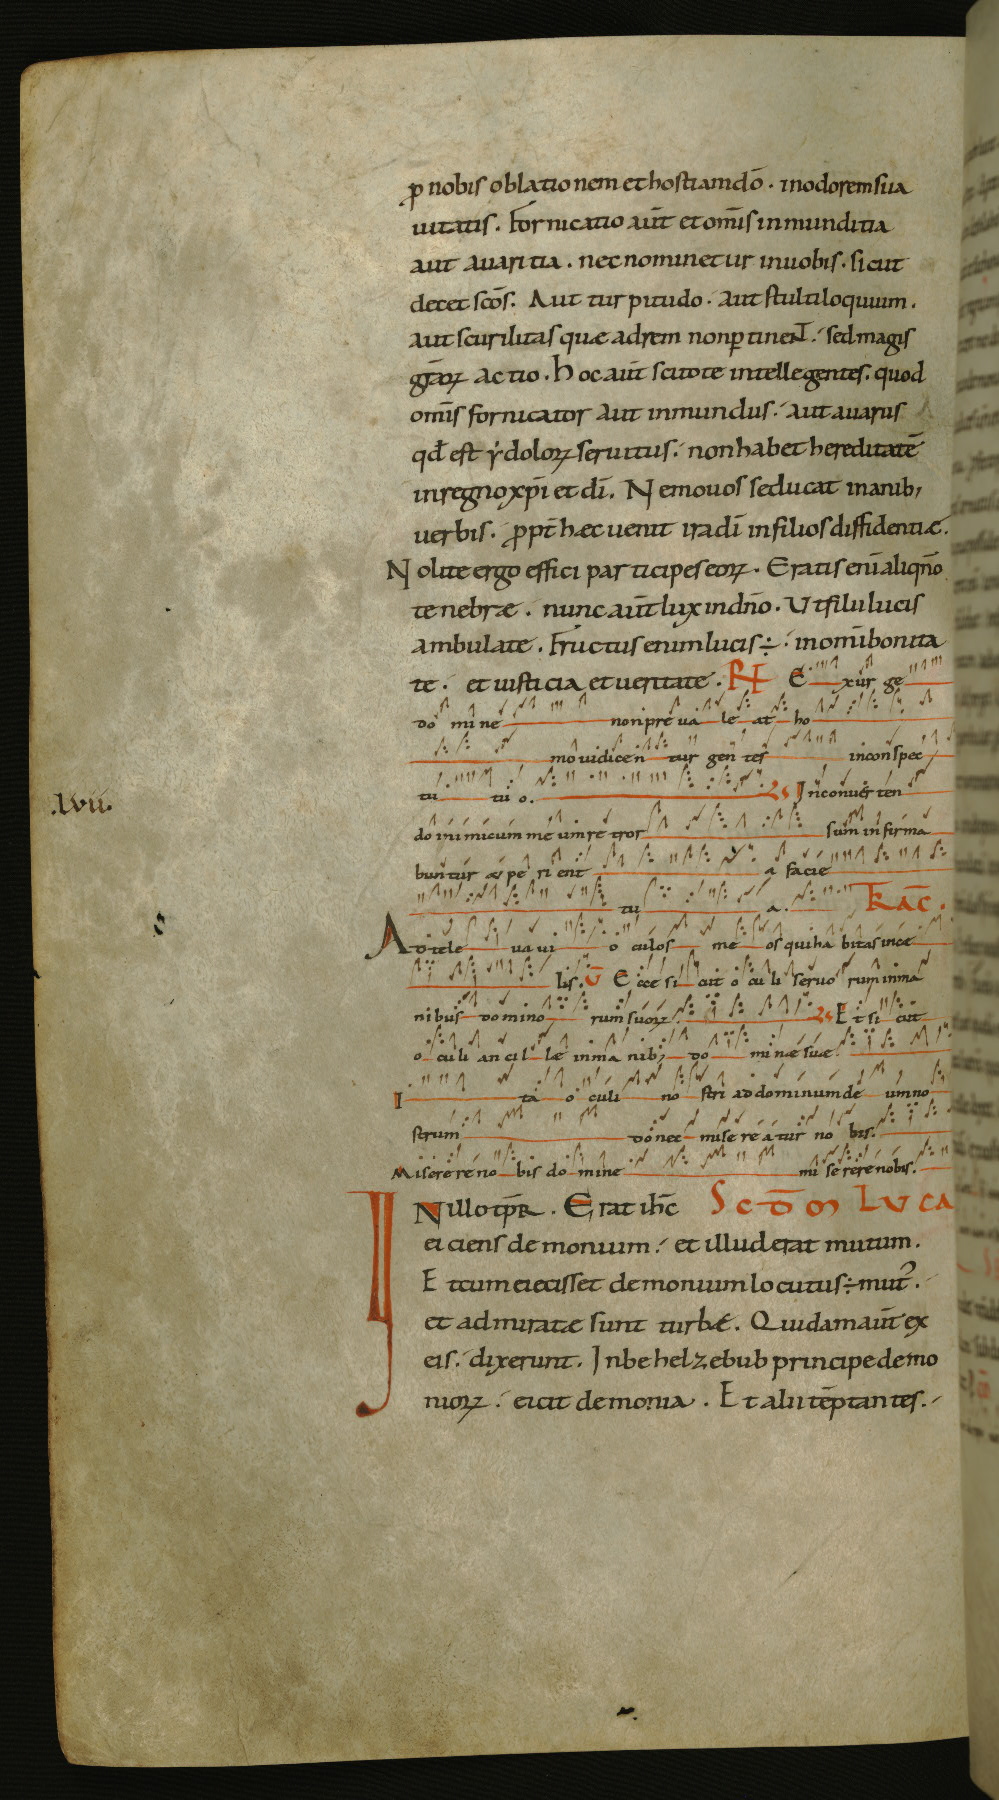 p nobis oblationem et hostiam dō. in odorem sua
vitatis. Fornicatio aūt et omīs inmunditia
aut avaritia. nec nominetur in vobis. sicut
decet scōs. Aut turpitudo. aut stultiloquium.
aut scurilitas quæ ad rem non ptinenT. sed magis
grāꝝ actio. hoc aūt scitote intellegentes. quod
omīs fornicator aut inmundus. aut avarus
qđ est ydoloꝝ servitus. non habet hereditatē
in regno xpī et dī. Nemo vos seducat inanib;
verbis. ppt̄ hæc venit ira dī in filios diffidentiæ.
Nolite ergo effici participes eoꝝ. Eratis enī aliqn̄o
tenebræ. nunc aūt lux in dn̄o. Ut filii lucis
ambulate. Fructus enim lucis ÷. in omī bonita
te. et iusticia et veritate. R Exur ge
do mine non pre va le at ho
mo iudicen tur gen tes in conspec
tu tu o. In conver ten
do inimicum me um re tror sum infirma
buntur & pe ri ent a facie
tu a. TRAC̄.
Ad te le va vi o culos me os qui habitas in ce
lis. V̄ Ecce si cut o cu li servo rum in ma
nibus domino rum suoꝝ Et si cut
o culi an cil læ in ma nib; do minæ suæ
Ita o culi no stri ad dominum de um no
strum donec mise re a tur no bis.
Misere re no bis do mine mi se rere nobis.
IN illo tp̄R. Erat ih̄c Scdm LUCA
eiciens demonium. et illud erat mutum.
Et cum eiecisset demonium locutus ÷ mut᷒.
et admiratæ sunt turbæ. Quidam aūt ex
eis. dixerunt. In behelzebub principe demo
nioꝝ. eicit demonia. Et alii tēptantes.
.lvii.